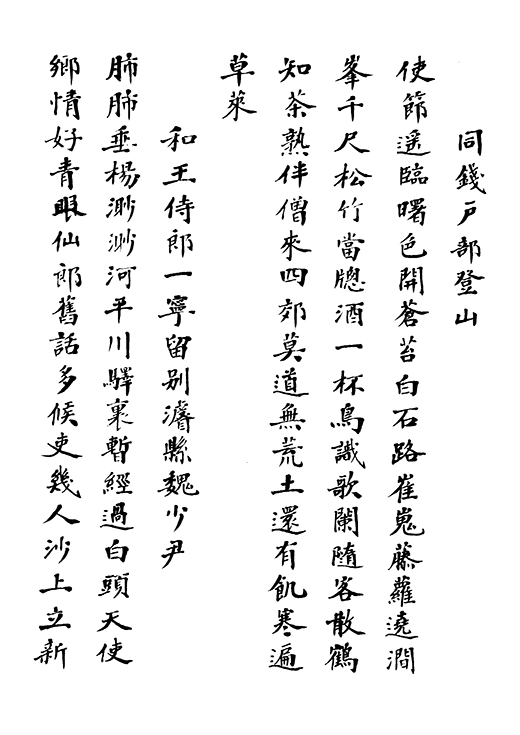 同錢戶部登山
使節遥臨曙色開蒼苔白石路崔嵬藤蘿遶澗
峯千尺松竹當牕酒一杯鳥識歌闌隨客散鶴
知茶熟伴僧來四郊莫道無荒土還有飢寒遍
草萊
和王侍郎一寧留别濬縣魏少尹
肺肺垂楊渺渺河平川驛裏暫經過白頭天使
鄉情好青眼仙郎舊話多候吏幾人沙上立新